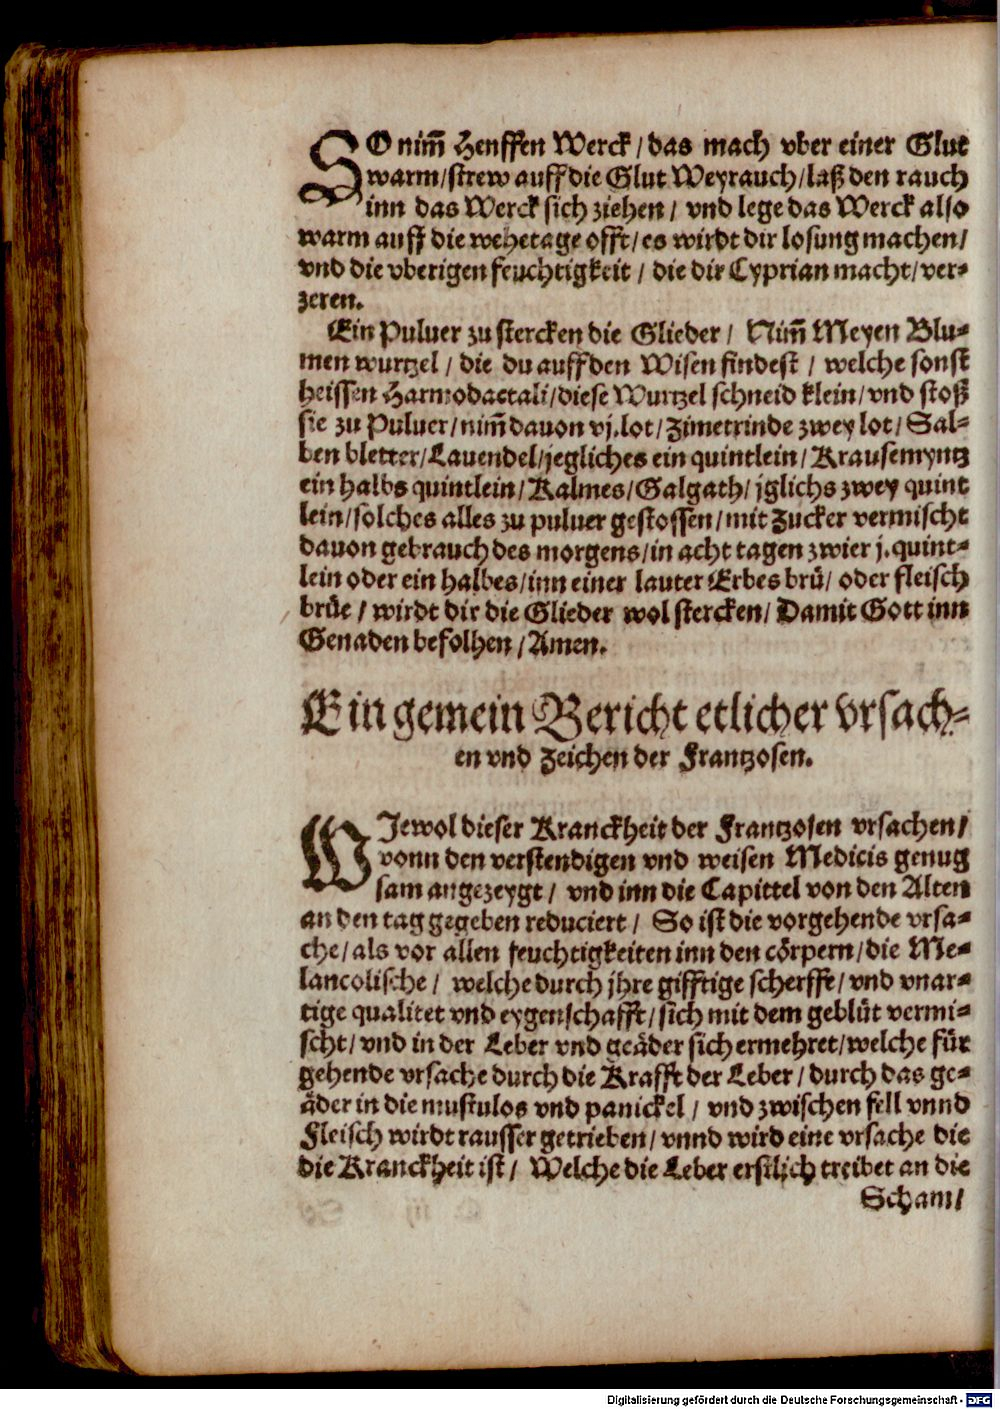 SO nim̃ Henffen Werck / das mach vber einer Glut
warm/strew auff die Glut Weyrauch/laß den rauch
inn das Werck sich ziehen / vnd lege das Werck also
warm auff die wehetage offt/es wirdt dir losung machen/
vnd die vberigen feuchtigkeit / die dir Cyprian macht/ver-
zeren.
Ein Puluer zu stercken die Glieder / Nim̃ Meyen Blu-
men wurtzel / die du auff den Wisen findest / welche sonst
heissen Harmodactali/diese Wurtzel schneid klein/vnd stoß
sie zu Puluer/nim̃ dauon vj.lot/Zimetrinde zwey lot/Sal-
ben bletter/Lauendel/jegliches ein quintlein/Krausemyntz
ein halbs quintlein/Kalmes/Galgath/jglichs zwey quint
lein/solches alles zu puluer gestossen/mit Zucker vermischt
dauon gebrauch des morgens/in acht tagen zwier j.quint-
lein oder ein halbes/inn einer lauter Erbes brü/ oder fleisch
brüe / wirdt dir die Glieder wol stercken/ Damit Gott inn
Genaden befolhen /Amen.
Ein gemein Bericht etlicher vrsach-
en vnd Zeichen der Frantzosen.
WJewol dieser Kranckheit der Frantzosen vrsachen/
vonn den verstendigen vnd weisen Medicis genug
sam angezeygt / vnd inn die Capittel von den Alten
an den tag gegeben reduciert / So ist die vorgehende vrsa-
che/als vor allen feuchtigkeiten inn den cörpern/die Me-
lancolische / welche durch jhre gifftige scherffe/ vnd vnar-
tige qualitet vnd eygenschafft/sich mit dem geblüt vermi-
scht/vnd in der Leber vnd geäder sich ermehret/welche für
gehende vrsache durch die Krafft der Leber/durch das ge-
äder in die mustulos vnd panickel / vnd zwischen fell vnnd
Fleisch wirdt rausser getrieben/vnnd wird eine vrsache die
die Kranckheit ist/ Welche die Leber erstlich treibet an die
Scham/
Digitalisierung gefördert durch die Deutsche Forschungsgemeinschaft - DFG